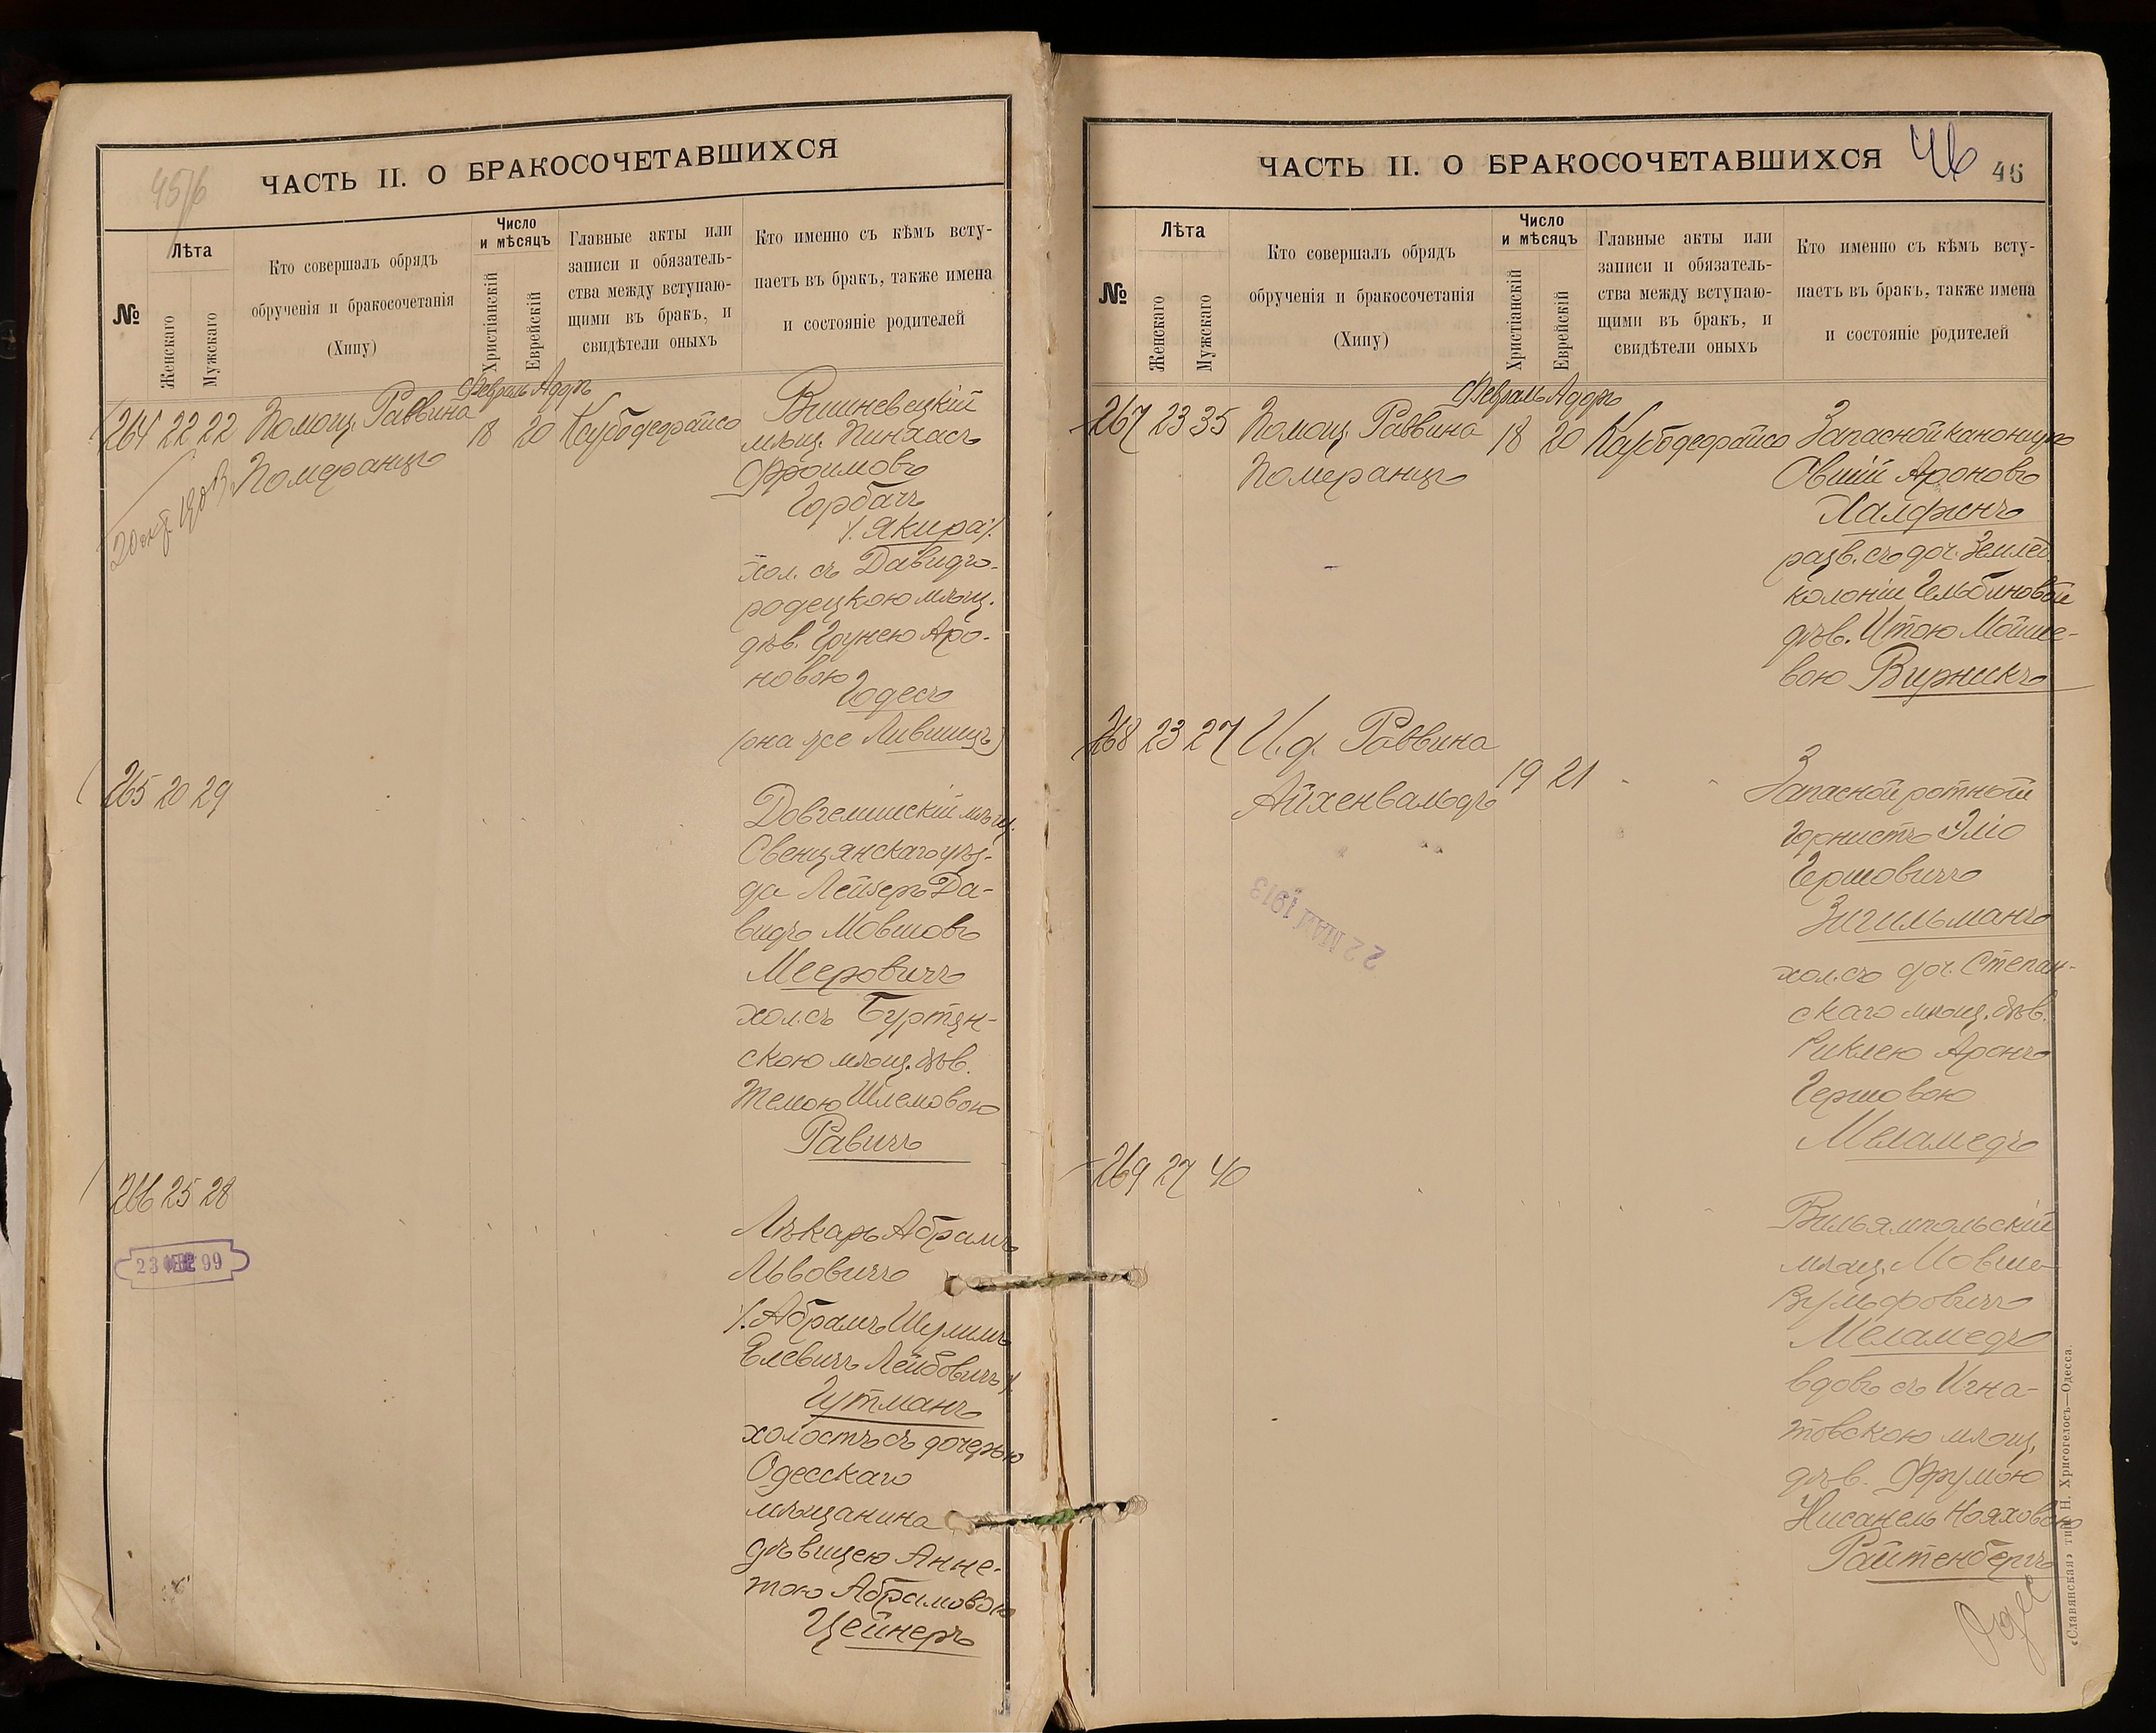 45/6
ЧАСТЬ II. О БРАКОСОЧЕТАВШИХСЯ
№
Лѣта
Женскаго
Мужскаго
Кто совершалъ обрядъ
обрученія и бракосочетанія
(Хипу)
Число
и мѣсяцъ
Христіанскій
Еврейскій
Главные акты или
записи и обязатель-
ства между вступаю-
щими въ бракъ, и
свидѣтели оныхъ
Кто именно съ кѣмъ всту-
паетъ въ бракъ, также имена
и состояніе родителей
Февраль Адоръ
264 22 22 Помощ. Раввина 18 20
Померанцъ
Вишневецкій
мѣщ. Пинхасъ
Фроимовъ
Горбачъ
/. Якира /.
хол. съ Давидго-
родецкою мѣщ.
дѣв. Грунею Аро-
новою
Годесъ
(она же Лившицъ)
265 20 29
Довгелишскій мѣщ.
Свенцянскаго уѣз-
да Лейзеръ Да-
видъ Мовшовъ
Мееровичъ
хол. съ Буртян-
скою мѣщ. дѣв.
Темою Шлемовою
Равичъ
266 25 28
99
Лѣкарь Абрамъ
Львовичъ
/. Абрамъ Шулимъ
Елевичъ Лейбовичъ /.
Гутманъ
холостъ съ дочерью
Одесскаго
мѣщанина
дѣвицею Анне-
тою Абрамовою
Цейнеръ
ЧАСТЬ II. О БРАКОСОЧЕТАВШИХСЯ
46
46
№
Лѣта
Женскаго
Мужскаго
Кто совершалъ обрядъ
обрученія и бракосочетанія
(Хипу)
Число
и мѣсяцъ
Христіанскій
Еврейскій
Главные акты или
записи и обязатель-
ства между вступаю-
щими въ бракъ, и
свидѣтели оныхъ
Кто именно съ кѣмъ всту-
паетъ въ бракъ, также имена
и состояніе родителей
Февраль Адоръ
267 23 35 Помощ. Раввина 18 20
Померанцъ
Запасной канониръ
Овшій Ароновъ
Халфинъ
разв. съ доч. Землед.
колоніи Гельбиновой
дѣв. Итою Мойше-
вою Вирникъ
268 23 27 И. д. Раввина
Айхенвальдъ 19 21
Запасной ротный
горнистъ Эліо
Гершовичъ
Зигильманъ
хол. съ доч. Степан-
скаго мѣщ. дѣв.
Риклею Аронъ
Гершовою
Меламедъ
22 МАЯ 1913
269 27 40
Вильямпольскій
мѣщ. Мовша
Вульфовичъ
Меламедъ
вдовъ съ Игна-
товскою мѣщ.
дѣв. Фрумою
Нисанель Нояховою
Райтенбергъ
«Славянская» тип. Н. Хрисогелосъ—Одесса.